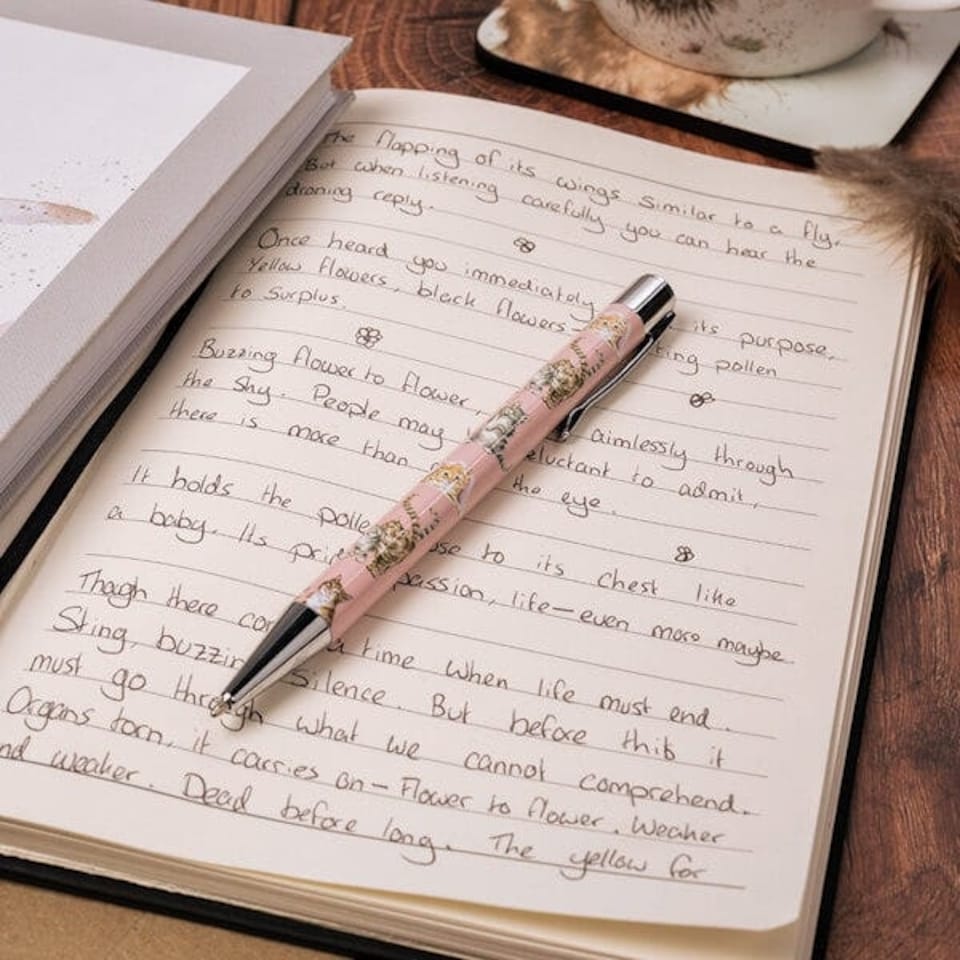 The flapping of its wings similar to a fly.
But when listening carefully you can hear the
droning reply.
Once heard you immediately its purpose,
Yellow flowers, black flowers - ting pollen
to surplus.
Buzzing flower to flower, aimlessly through
the sky. People may eluctant to admit,
there is more than the eye.
It holds the polle ose to its chest like
a baby. Its pri passion, life—even more maybe.
Though there co a time when life must end.
Sting, buzzin silence. But before this it
must go through what we cannot comprehend.
Organs torn, it carries on — Flower to flower. Weaker
nd weaker. Dead before long. The yellow for